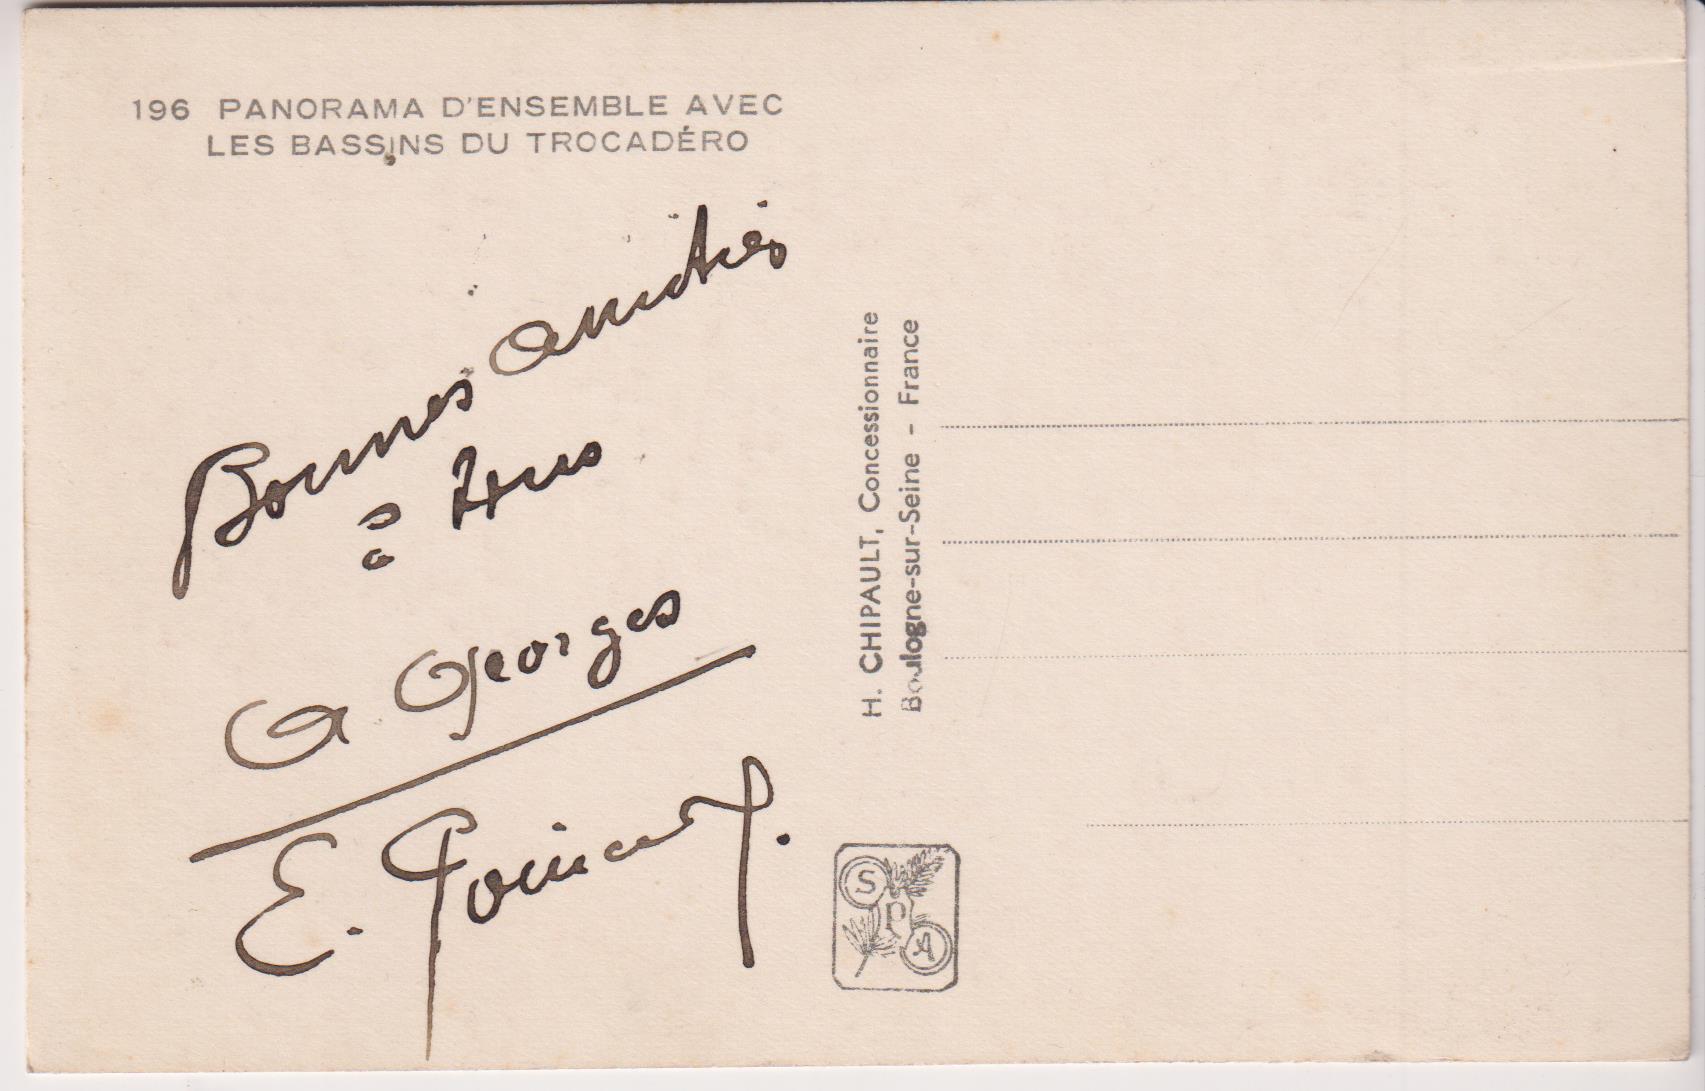 196 PANORAMA D'ENSEMBLE AVEC
LES BASSINS DU TROCADÉRO
Bonnes amitiés
à tous
a Georges
E.
H. CHIPAULT, Concessionnaire
Boulogne-sur-Seine - France
S
P
A